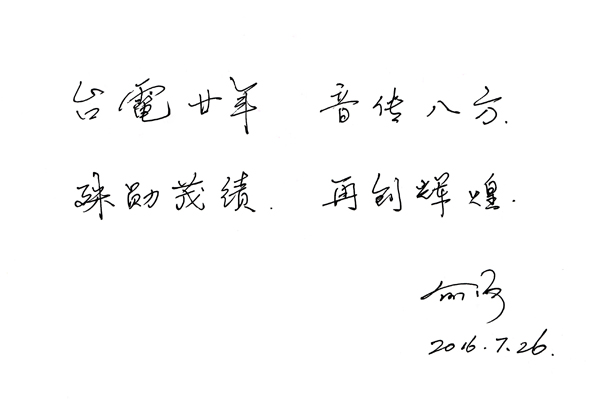 台電廿年 音传八方.
殊勋茂绩. 再创辉煌.
2016.7.26.